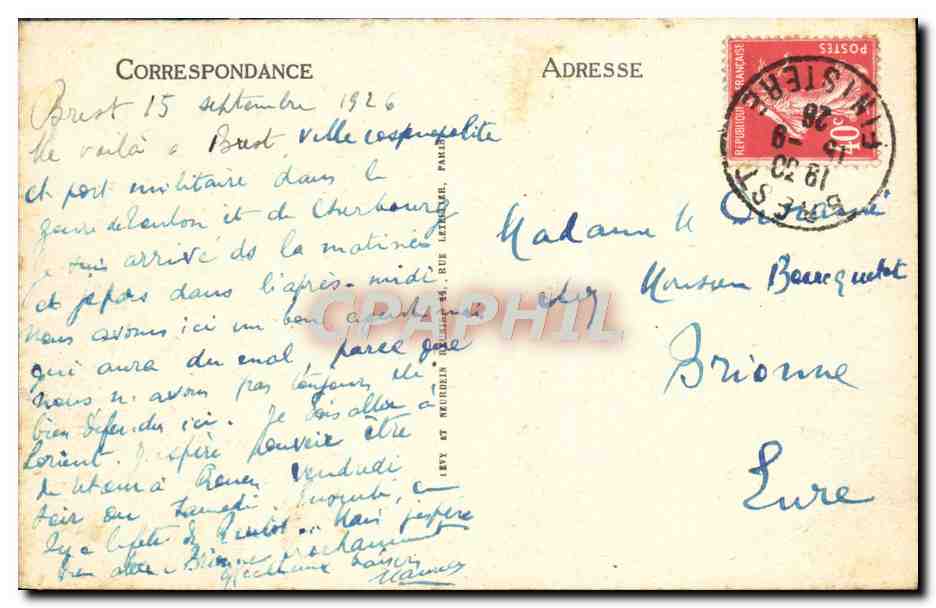 CORRESPONDANCE
Brest 15 septembre 1926
Me voilà à Brest, ville cosmopolite
et port militaire dans le
genre de Toulon et de Cherbourg
Je suis arrivé ds la matinée
et repars dans l'après-midi
Nous avons ici un bon
qui aura du mal, parce que
nous n'avons pas toujours été
bien défendus ici. Je dois aller à
Lorient. J'espère pouvoir être
de retour à Rouen vendredi
soir ou samedi.
Il y a la fête de ... Mais j'espère
bien aller à Brionne prochainement
baisers
LEVY ET NEURDEIN REUNIS, 44, RUE LETELLIER, PARIS
ADRESSE
Madame
chez Monsieur
Brionne
Eure
REPUBLIQUE FRANÇAISE
POSTES
40c
BREST
FINISTERE
18 30
15 -9
26
CPAPHIL